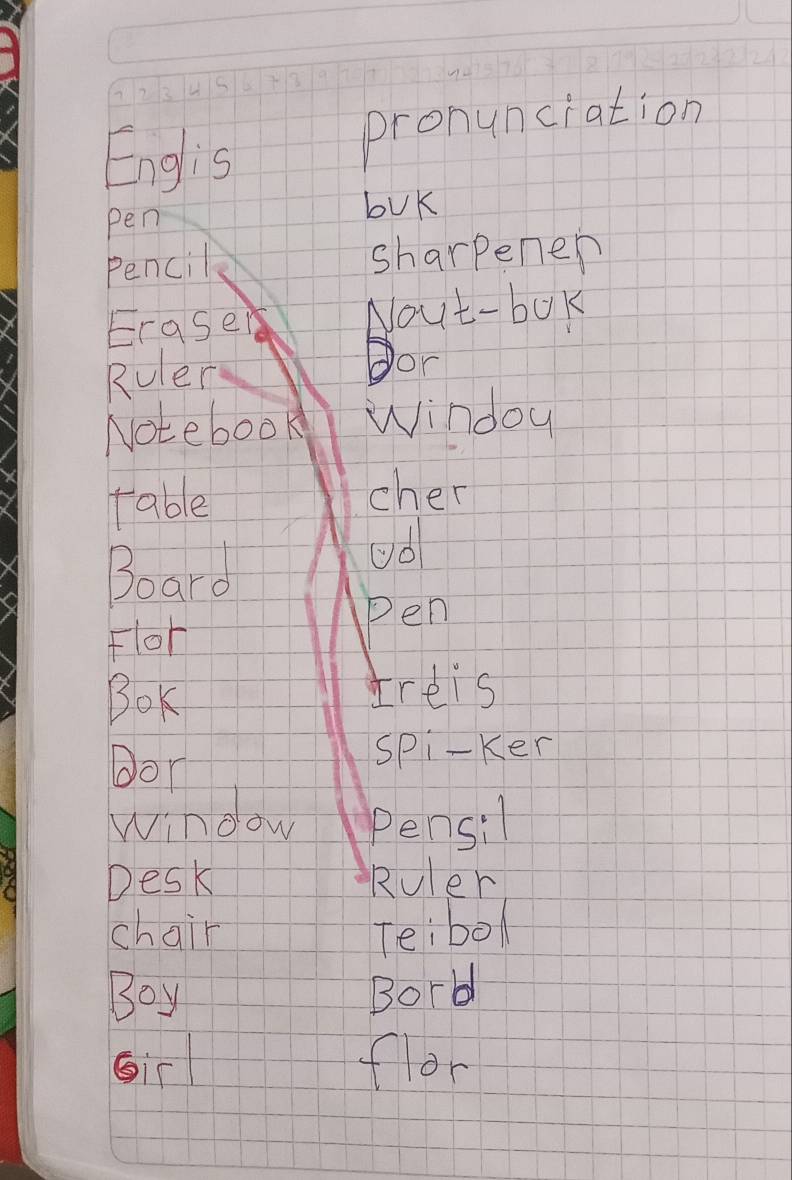 Englis
pen
Pencil
Eraser
Ruler
Notebook
table
Board
Flor
Bok
Dor
Window
Desk
chair
Boy
Girl
pronunciation
buk
sharpener
Nout-buk
Dor
Windou
cher
Pen
Ireis
spi-ker
Pensil
Ruler
Teibol
Bord
flor